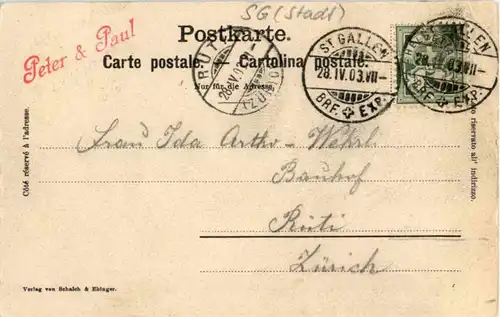 SG (Stadt)
Peter & Paul
Postkarte.
Carte postale. Cartolina postale.
Nur für die Adresse.
RÜTI
28.IV.03.VII-
(ZÜRICH)
ST. GALLEN
28.IV.03.VII-
BRF. EXP.
ST. GALLEN
28.IV.03.VII-
BRF. EXP.
Côté réservé à l'adresse.
riservato all' indirizzo.
Frau Ida Artho-Wehrl
Bauhof
Rüti
Zürich
Verlag von Schalch & Ebinger.